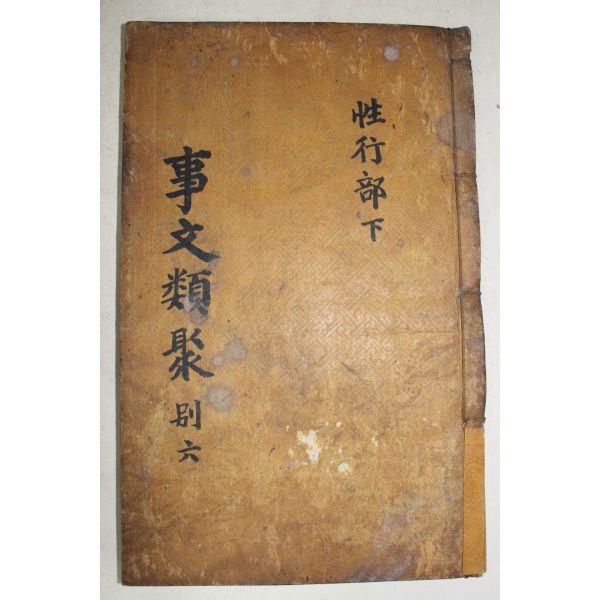 性行部下
事文類聚 别六